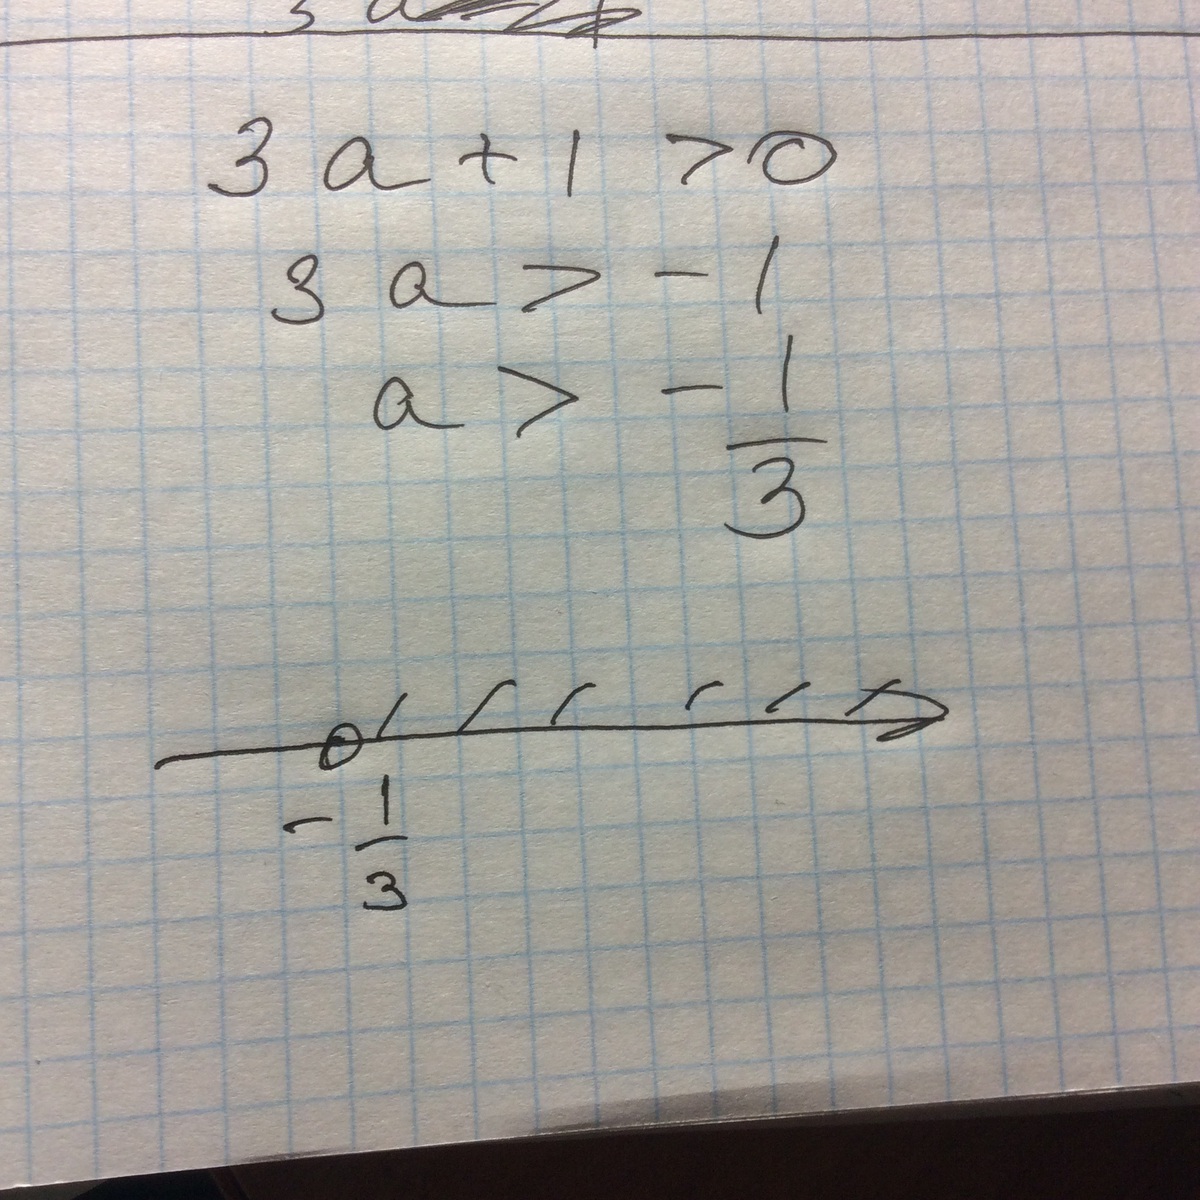 3 a
3 a + 1 > 0
3 a > - 1
a > - 1/3
- 1/3